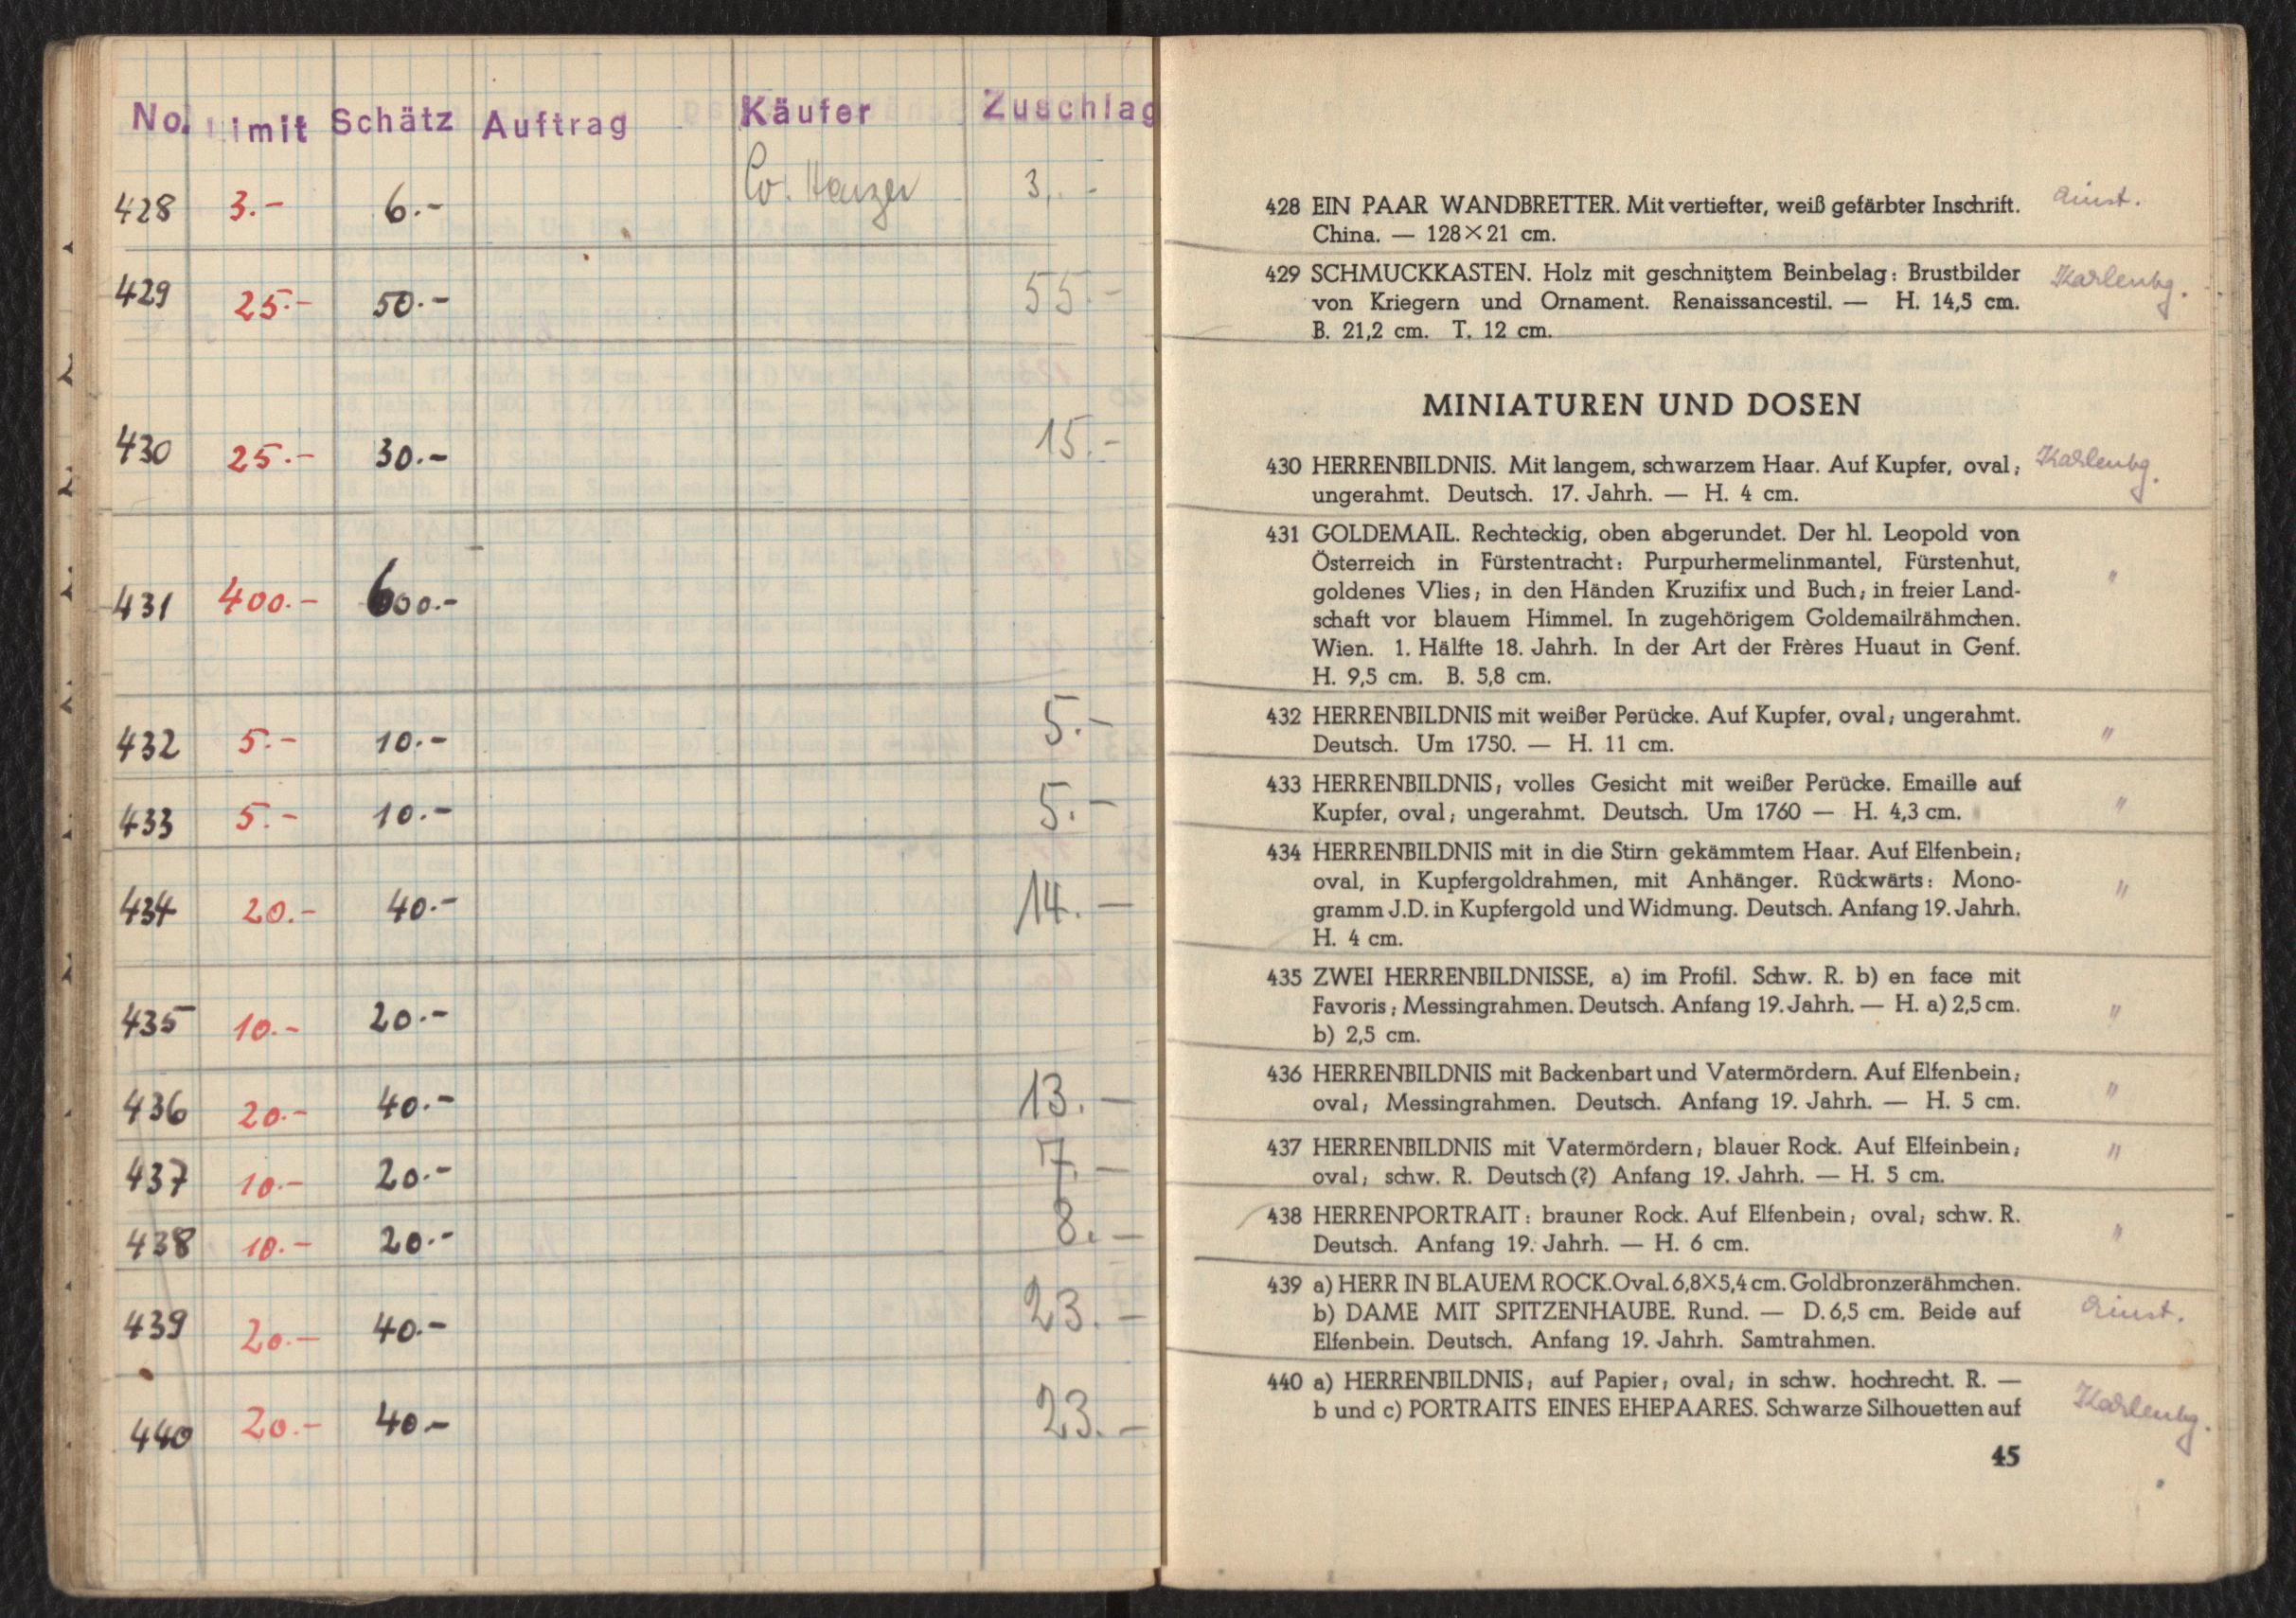 No. Limit Schätz Auftrag Käufer Zuschlag
428 3.- 6.- 3.-
429 25.- 50.- 55.-
430 25.- 30.- 15.-
431 400.- 600.-
432 5.- 10.- 5.-
433 5.- 10.- 5.-
434 20.- 40.- 14.-
435 10.- 20.-
436 20.- 40.- 13.-
437 10.- 20.- 7.-
438 10.- 20.- 8.-
439 20.- 40.- 23.-
440 20.- 40.- 23.-
428 EIN PAAR WANDBRETTER. Mit vertiefter, weiß gefärbter Inschrift.
China. — 128×21 cm.
429 SCHMUCKKASTEN. Holz mit geschnitztem Beinbelag: Brustbilder
von Kriegern und Ornament. Renaissancestil. — H. 14,5 cm.
B. 21,2 cm. T. 12 cm.
Karlenbg.
MINIATUREN UND DOSEN
430 HERRENBILDNIS. Mit langem, schwarzem Haar. Auf Kupfer, oval;
ungerahmt. Deutsch. 17. Jahrh. — H. 4 cm.
Karlenbg.
431 GOLDEMAIL. Rechteckig, oben abgerundet. Der hl. Leopold von
Österreich in Fürstentracht: Purpurhermelinmantel, Fürstenhut,
goldenes Vlies; in den Händen Kruzifix und Buch; in freier Land-
schaft vor blauem Himmel. In zugehörigem Goldemailrähmchen.
Wien. 1. Hälfte 18. Jahrh. In der Art der Frères Huaut in Genf.
H. 9,5 cm. B. 5,8 cm.
"
432 HERRENBILDNIS mit weißer Perücke. Auf Kupfer, oval; ungerahmt.
Deutsch. Um 1750. — H. 11 cm.
"
433 HERRENBILDNIS; volles Gesicht mit weißer Perücke. Emaille auf
Kupfer, oval; ungerahmt. Deutsch. Um 1760 — H. 4,3 cm.
"
434 HERRENBILDNIS mit in die Stirn gekämmtem Haar. Auf Elfenbein;
oval, in Kupfergoldrahmen, mit Anhänger. Rückwärts: Mono-
gramm J.D. in Kupfergold und Widmung. Deutsch. Anfang 19. Jahrh.
H. 4 cm.
"
435 ZWEI HERRENBILDNISSE, a) im Profil. Schw. R. b) en face mit
Favoris; Messingrahmen. Deutsch. Anfang 19. Jahrh. — H. a) 2,5 cm.
b) 2,5 cm.
"
436 HERRENBILDNIS mit Backenbart und Vatermördern. Auf Elfenbein;
oval; Messingrahmen. Deutsch. Anfang 19. Jahrh. — H. 5 cm.
"
437 HERRENBILDNIS mit Vatermördern; blauer Rock. Auf Elfeinbein;
oval; schw. R. Deutsch (?) Anfang 19. Jahrh. — H. 5 cm.
"
438 HERRENPORTRAIT: brauner Rock. Auf Elfenbein; oval; schw. R.
Deutsch. Anfang 19. Jahrh. — H. 6 cm.
"
439 a) HERR IN BLAUEM ROCK. Oval. 6,8×5,4 cm. Goldbronzerähmchen.
b) DAME MIT SPITZENHAUBE. Rund. — D. 6,5 cm. Beide auf
Elfenbein. Deutsch. Anfang 19. Jahrh. Samtrahmen.
440 a) HERRENBILDNIS; auf Papier; oval; in schw. hochrecht. R. —
b und c) PORTRAITS EINES EHEPAARES. Schwarze Silhouetten auf
Karlenbg.
45